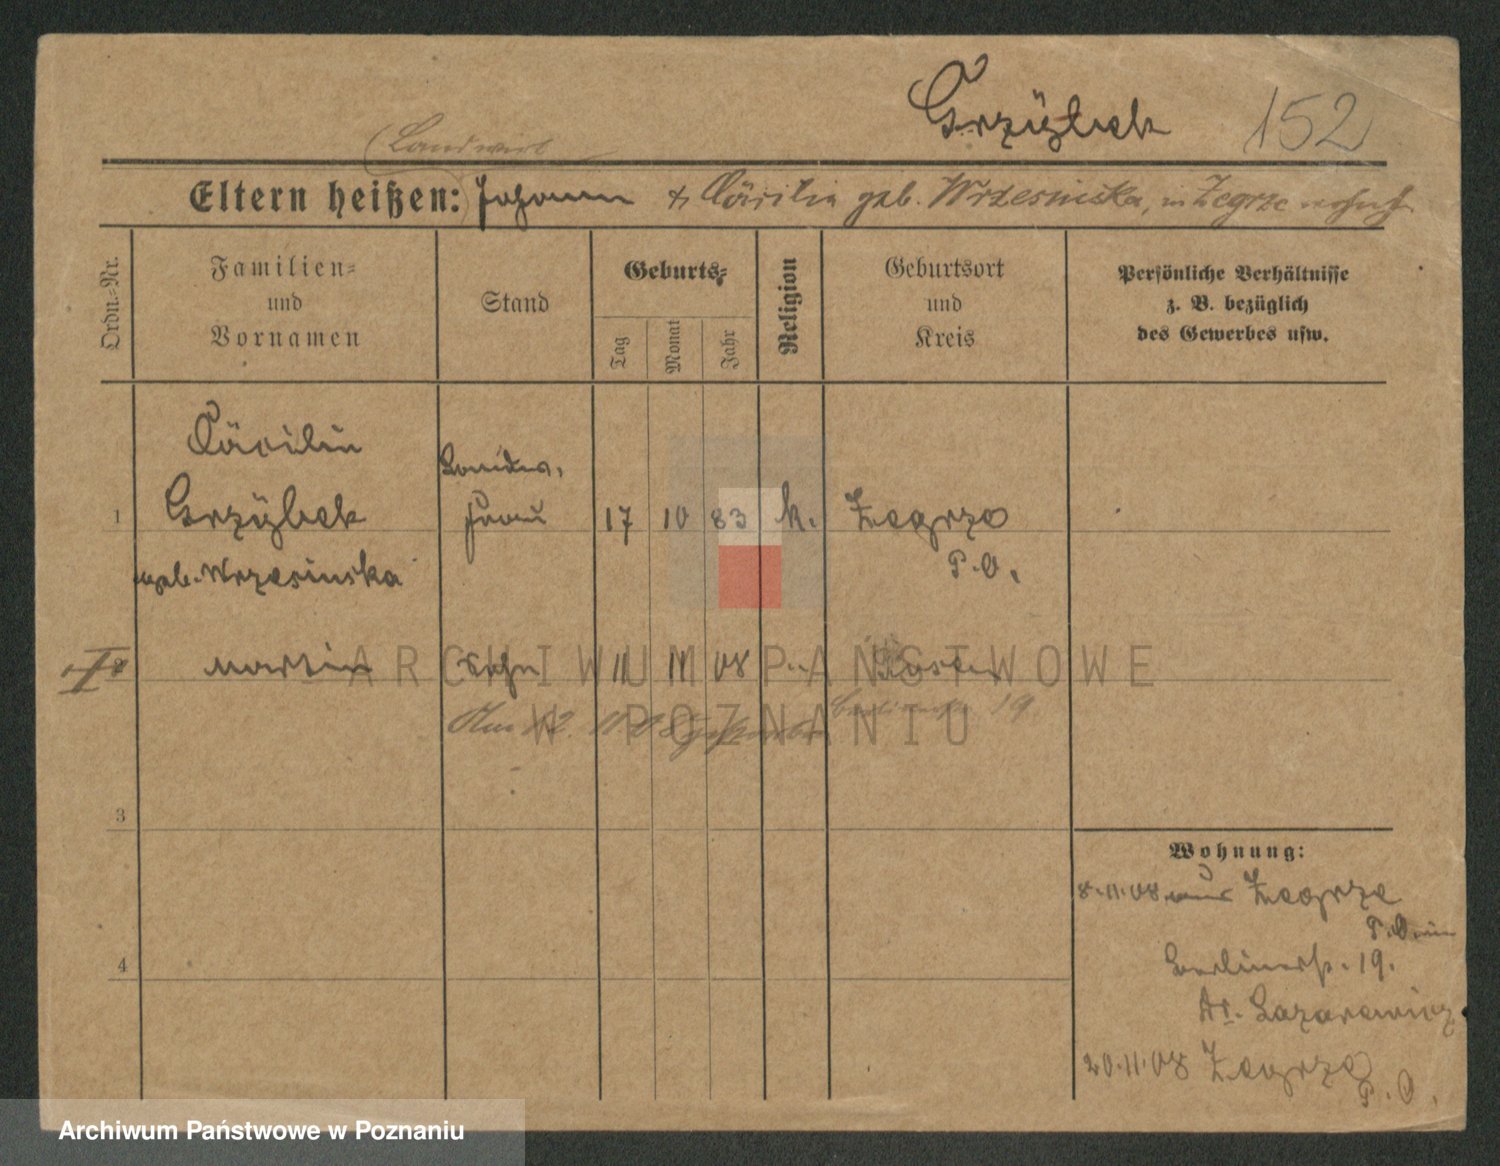 Grzÿbek 152
(Landwirt
Eltern heißen: Johann & Cäcilia geb. Wrzesinska, in Zegrze wohnh.
Ordn.-Nr.
Familien-
und
Vornamen
Stand
Geburts-
Tag
Monat
Jahr
Religion
Geburtsort
und
Kreis
Persönliche Verhältnisse
z. B. bezüglich
des Gewerbes usw.
Cäcilia
1 Grzÿbek frau 17 10 83 k. Zegrze
geb. Wrzesinska P. O.
Martin Sohn 11 11 08 Posen
12. 11. 08 gestorben 19
3
Wohnung:
8.11.08 aus Zegrze
P. O. in
4 Berlinerstr. 19.
Dr. Lazarewicz
20.11.08 Zegrze
P. O.
ARCHIWUM PAŃSTWOWE
W POZNANIU
Archiwum Państwowe w Poznaniu